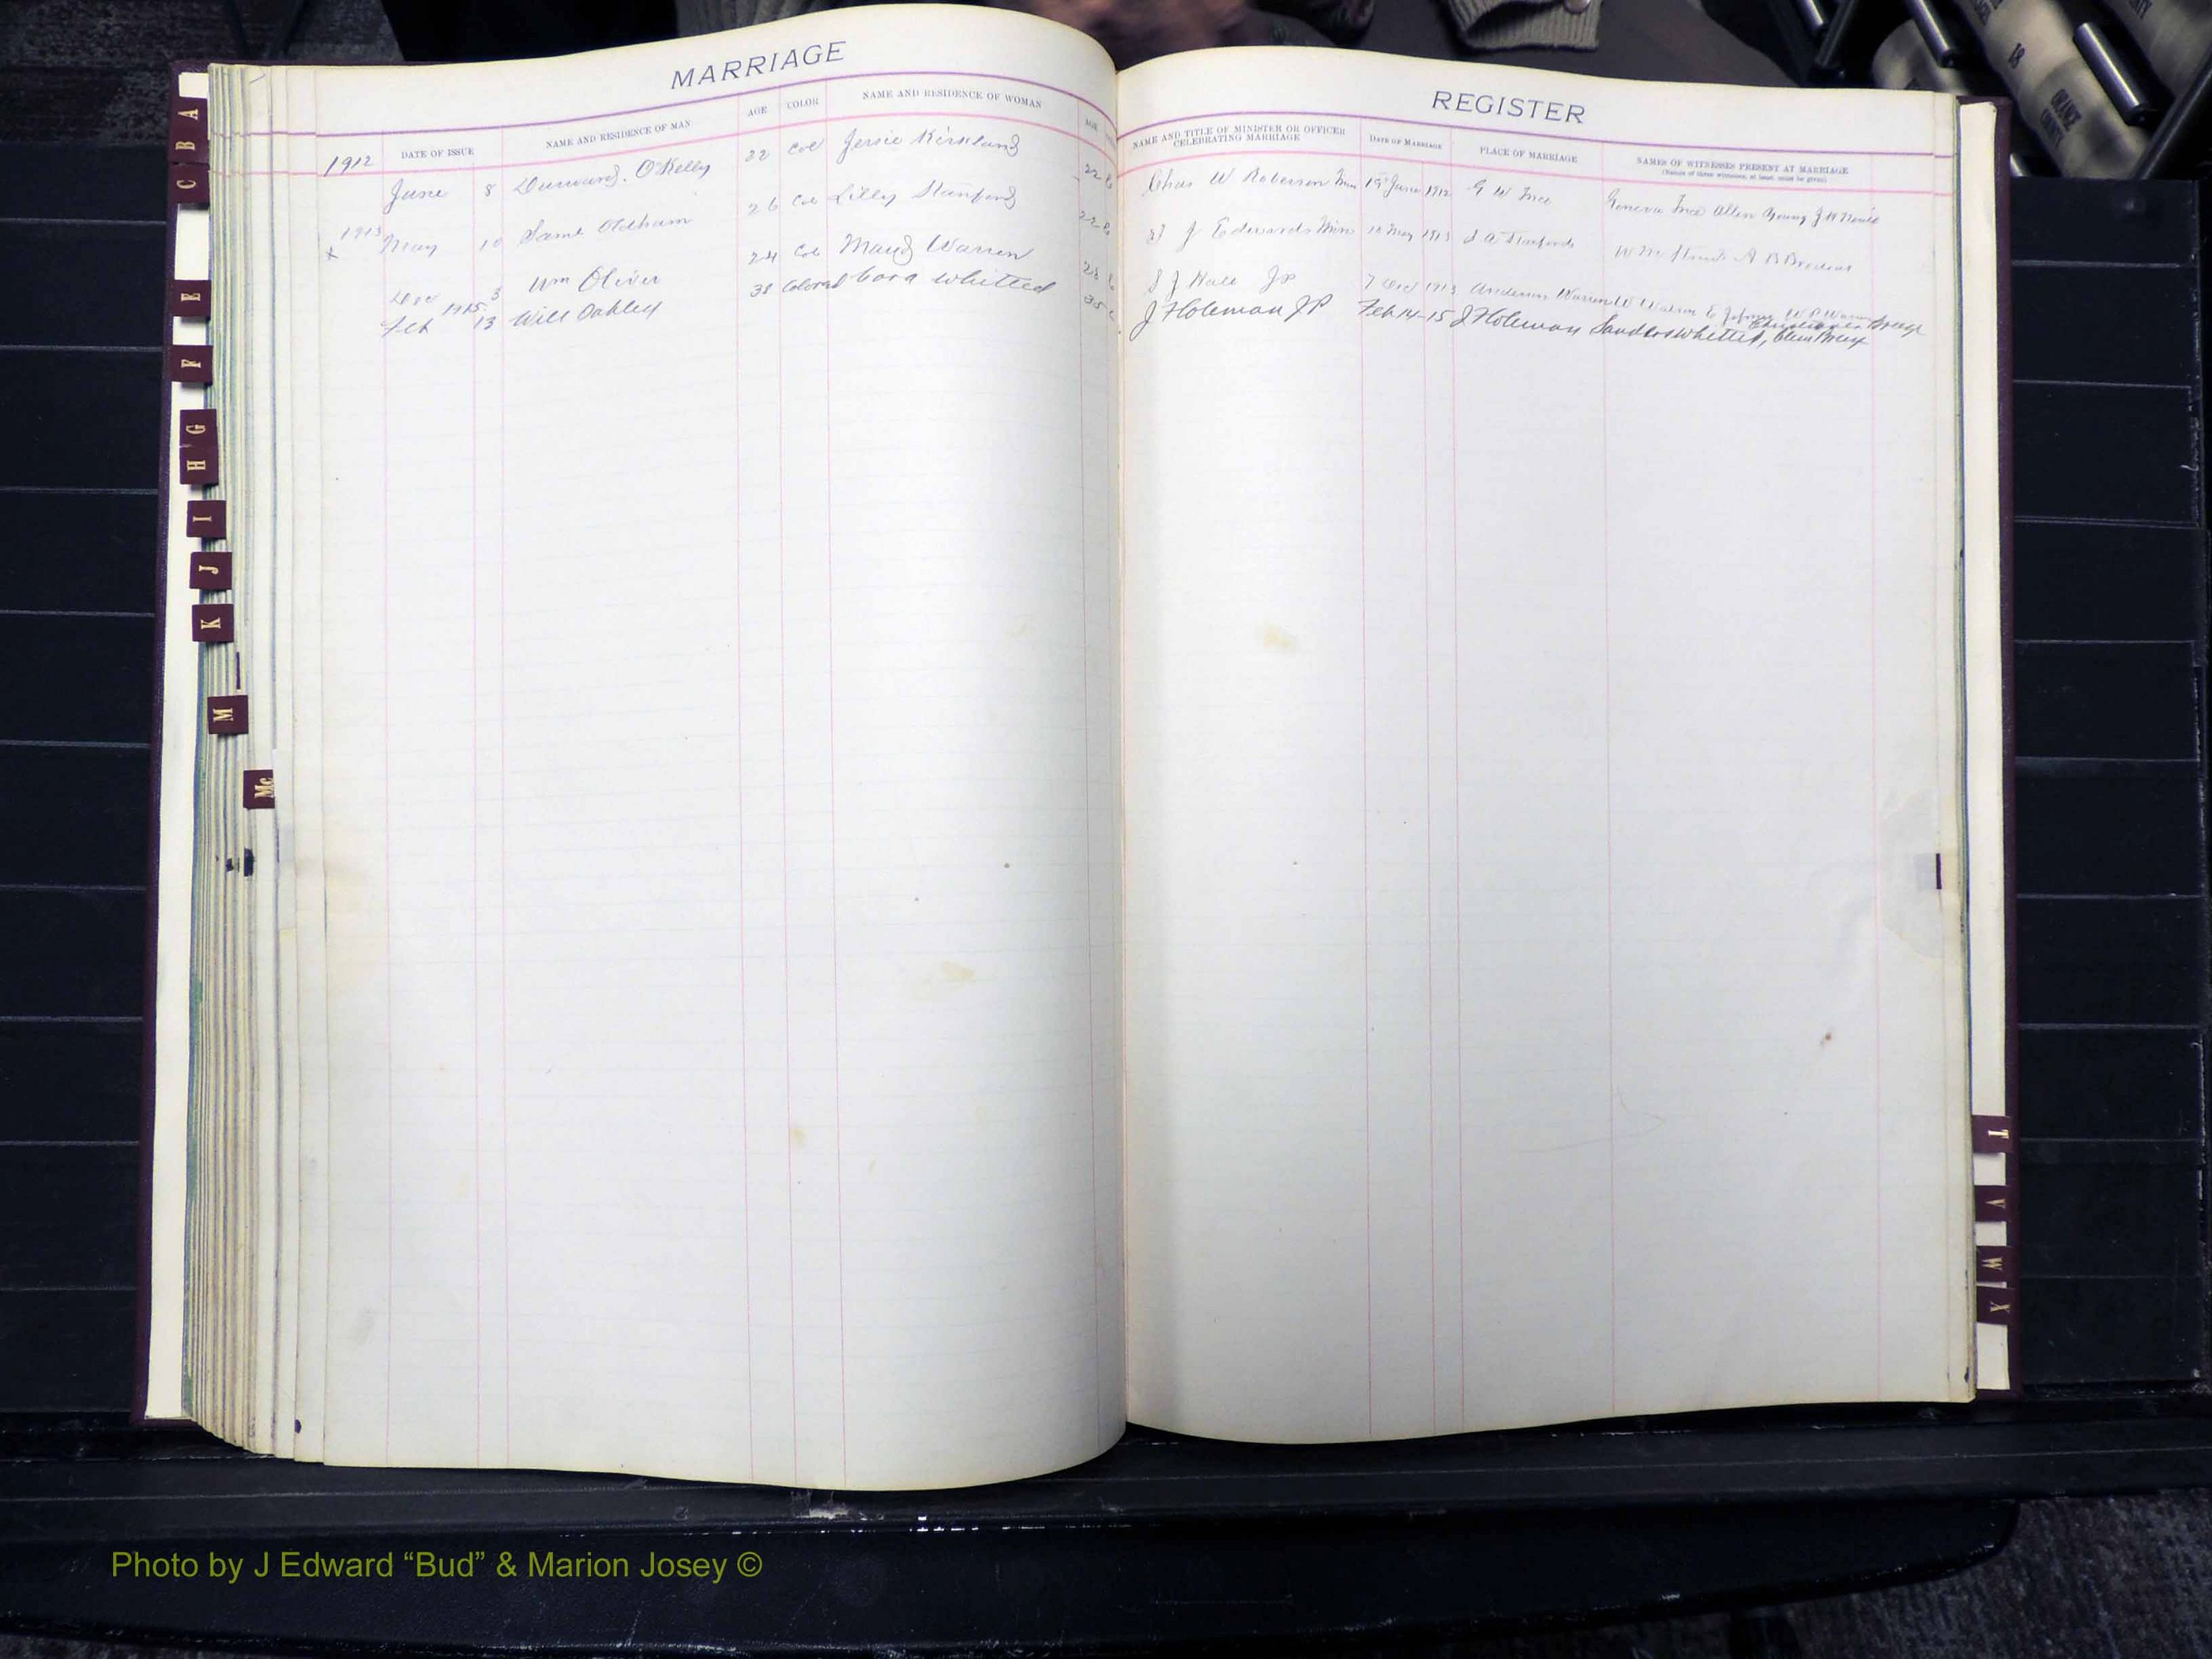 MARRIAGE
DATE OF ISSUE NAME AND RESIDENCE OF MAN AGE COLOR NAME AND RESIDENCE OF WOMAN AGE
1912 June 8 Durward O'Kelly 22 Col Jersie Kirkland 22
1913 x May 10 Saml Oldham 26 Col Lilly Stanford 22
Dec 3 Wm Oliver 24 Col Maud Warren 28
1915 Feb 13 Will Oakley 38 Colored Cora Whitted 35
REGISTER
NAME AND TITLE OF MINISTER OR OFFICER CELEBRATING MARRIAGE DATE OF MARRIAGE PLACE OF MARRIAGE NAMES OF WITNESSES PRESENT AT MARRIAGE
(Names of three witnesses, at least, must be given)
Chas W Roberson Min June 1912 G W Geneva Allen Young
J Edwards Min 10 May 1913
S J Hall JP 7 Dec 1913 Anderson Warren
J Holeman JP Feb 14-15 J Holeman Sanders Whitted,
A
B
C
E
F
G
H
I
J
K
M
Mc
T
V
W
X
18
ORANGE
COUNTY
Photo by J Edward “Bud” & Marion Josey ©